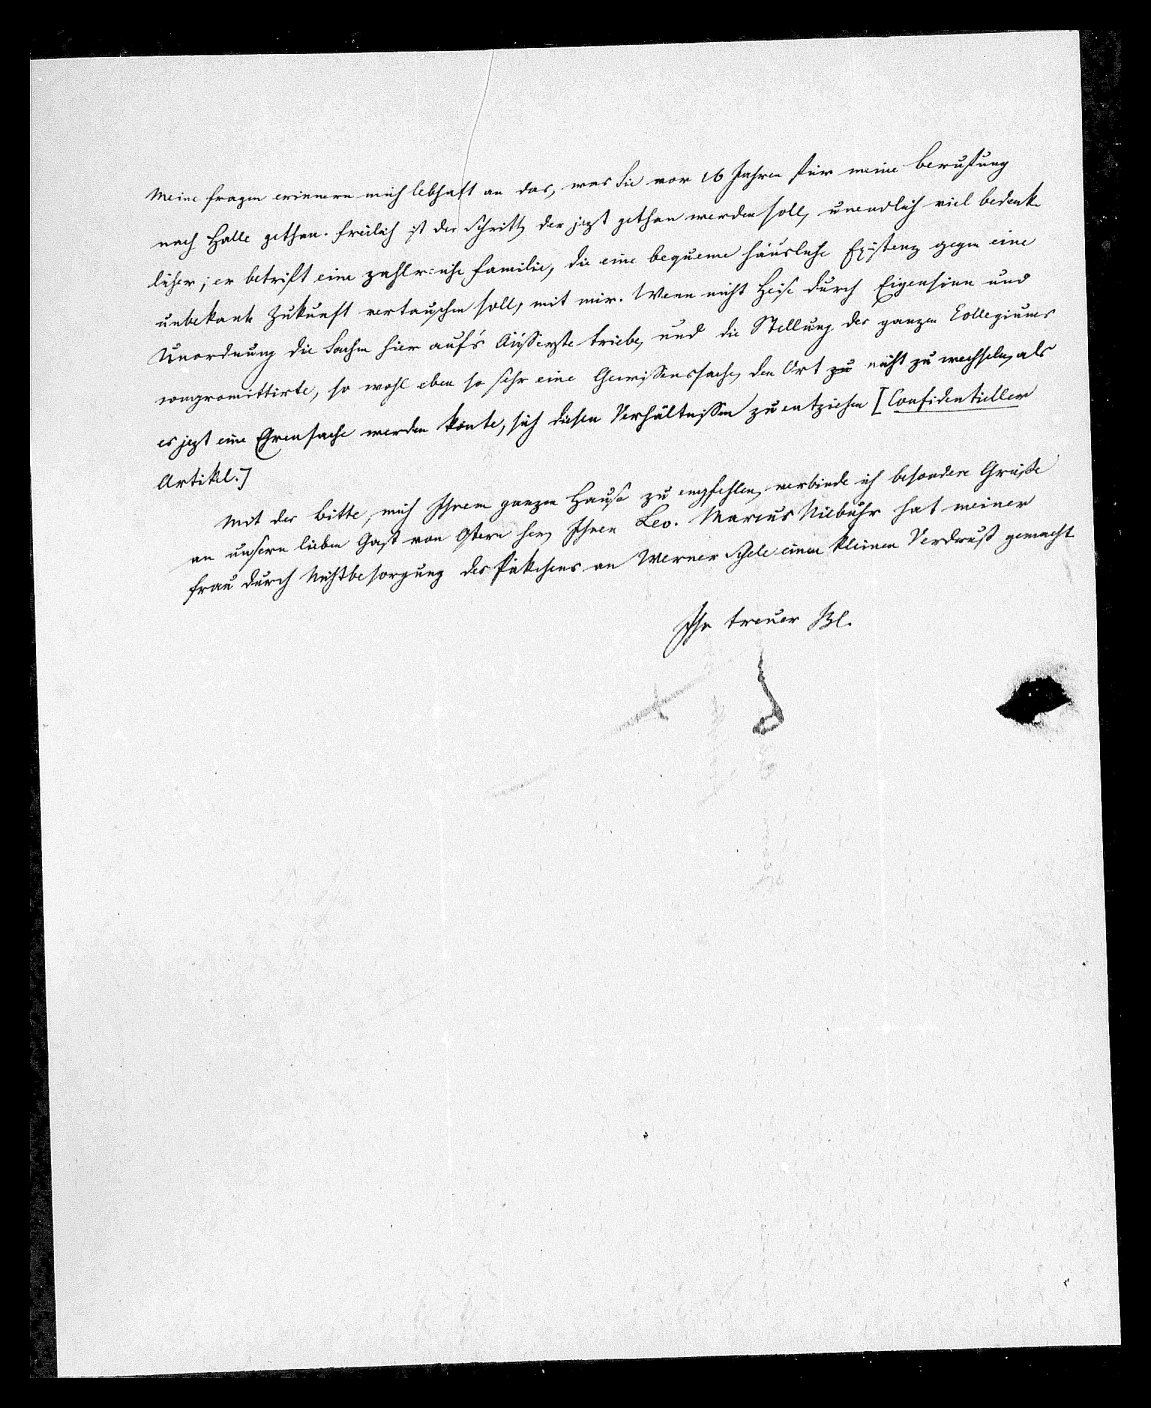 Meine Fragen erinnern mich lebhaft an das, was Sie vor 16 Jahren für meine Berufung
nach Halle gethan. Freilich ist der Schritt, der jezt gethan werden soll, unendlich viel bedenk-
licher; er betrift eine zahlreiche Familie, die eine bequeme häusliche Existenz gegen eine
unbekante Zukunft vertauschen soll, mit mir. Wenn nicht Heise durch Eigensinn und
Unordnung die Sachen hier auf's Äüsserste triebe, und die Stellung des ganzen Collegiums
compromittirte, so wohl eben so sehr eine Gewissenssache, den Ort zu nicht zu wechseln, als
es jezt eine Ehrensache werden könte, sich diesen Verhältnissen zu entziehen [Confidentieller
Artikel.]
Mit der Bitte, mich Ihrem ganzen Hause zu empfehlen, verbinde ich besondere Grüsse
an unsern lieben Gast von Ostern her, Ihren Leo. Marcus Niebuhr hat meiner
Frau durch Nichtbesorgung des Päkchens an Werner einen kleinen Verdruss gemacht
Ihr treuer Bl.